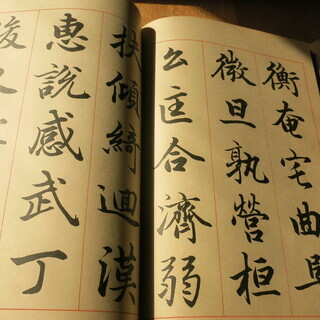 衡奄宅曲阜
微旦孰營桓
公匡合濟弱
扶傾綺迴漢
惠說感武丁